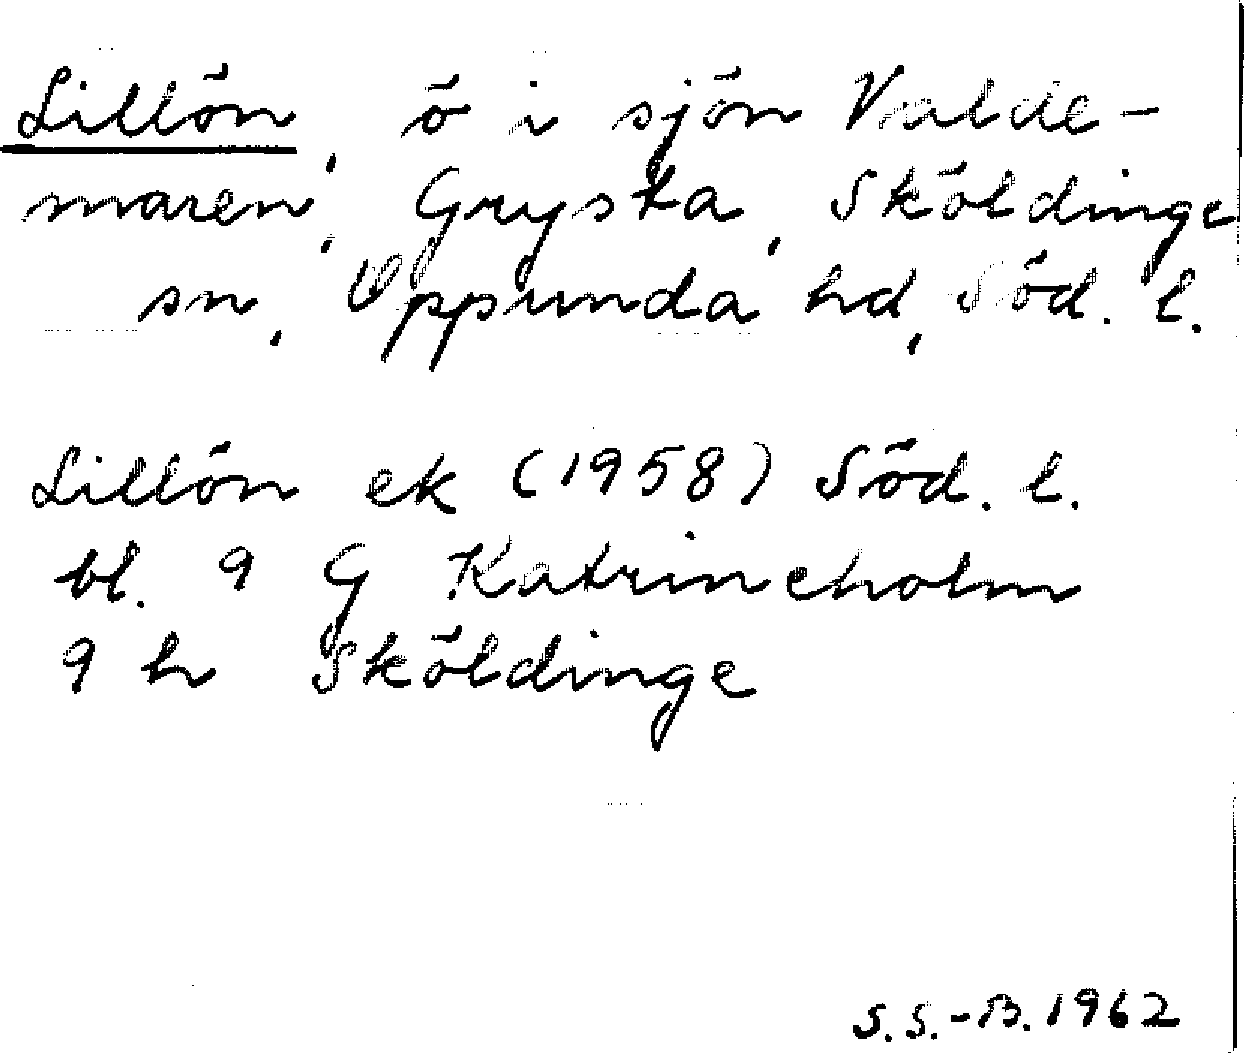 Lillön, ö i sjön Valde-
maren, Grysta, Sköldinge
sn, Oppunda hd, Söd. l.
Lillön ek (1958) Söd. l.
bl. 9 G Katrineholm
9 h Sköldinge
S.S.-B. 1962